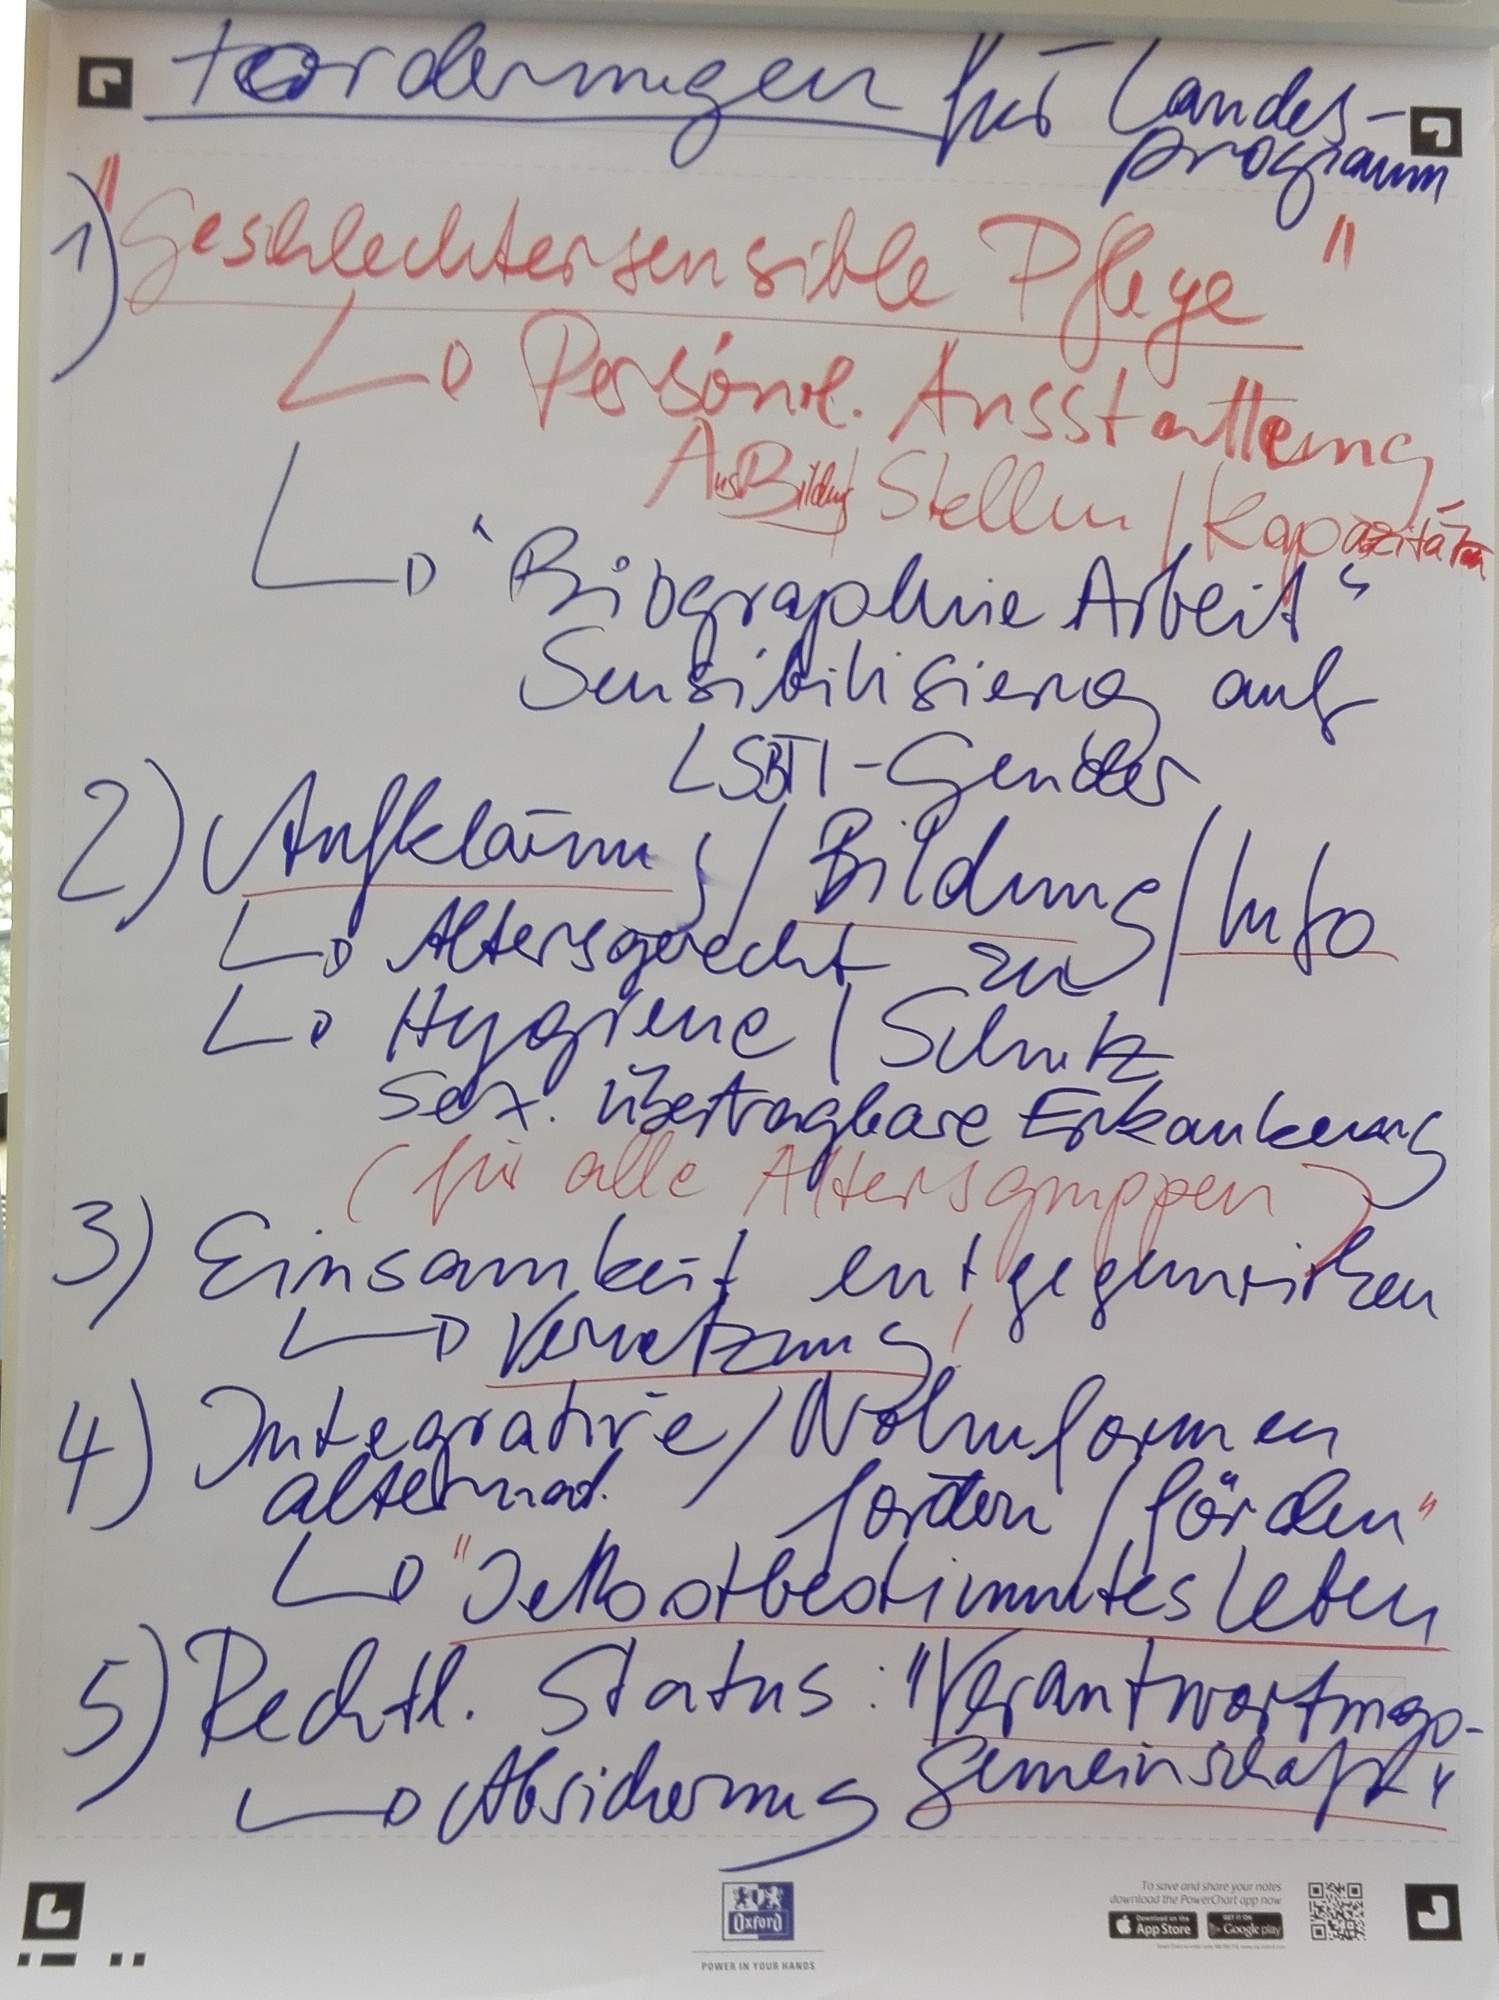 Forderungen für Landes-
programm
1) "Geschlechtersensible Pflege"
Personl. Ausstattung
AusBildung Stellen / Kapazitäten
"Biographie Arbeit"
Sensibilisierung auf
LSBTI-Gender
2) Aufklärung / Bildung / Info
Altersgerecht zu
Hygiene / Schutz
sex. übertragbare Erkrankung
(für alle Altersgruppen)
3) Einsamkeit entgegenwirken
Vernetzung!
4) Integrative / Wohnformen
alternat. fordern / fördern
"Selbstbestimmtes Leben"
5) Rechtl. Status: "Verantwortungs-
Absicherung gemeinschaft"
Oxford
POWER IN YOUR HANDS
To save and share your notes
download the PowerChart app now
Download on the App Store
GET IT ON Google play